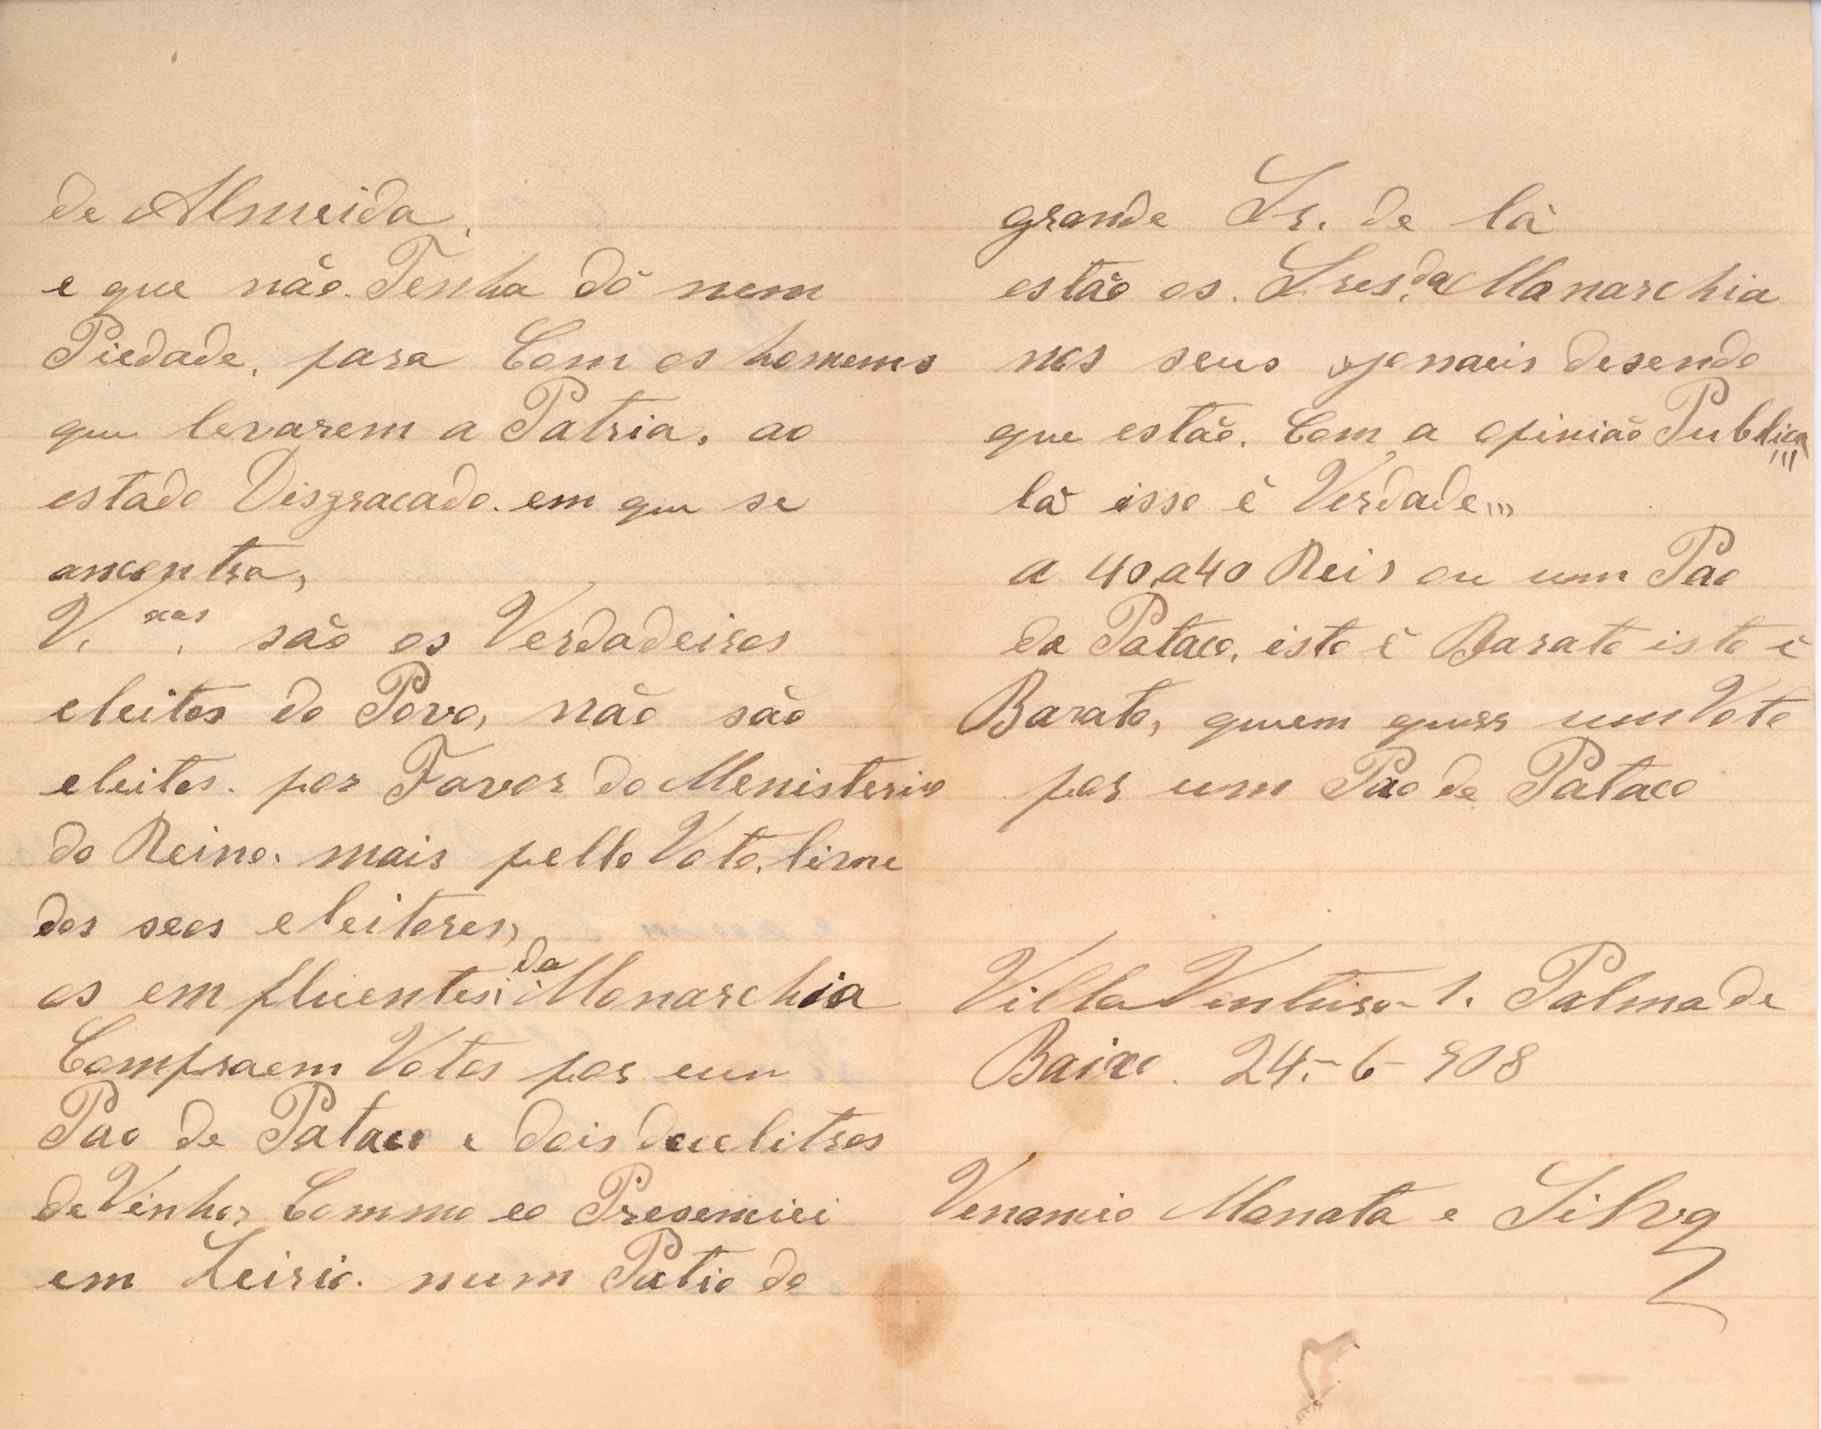 de Almeida,
e que não. Tenha dó nem
Piedade, para Com os homems
que levarem a Patria, ao
estado Disgracado. em que se
ancontra,
V. xas. são os Verdadeiros
eleitos do Povo, não são
eleitos. por Favor do Menisterio
do Reino. mais pello Voto. livre
dos seos eleitores,
os emfluentes, da Monarchia
Compraem Votos por um
Pao de Pataco e dois decelitros
de Vinho, Commo eo Presemiei
em Leiria. num Patio do
grande Sr. de lá
estão os. Sres, da Monarchia
nos seus jornaeis desendo
que estão. Com, a opinião Publica,,,
lá isso é Verdade,,,
a 40, a 40 Reis ou um Pao
de Pataco, isto é Barato isto é
Barato, quuem quer um Voto
por um Pao de Pataco
Villa Ventura 1. Palma de
Baixo. 24-6-908
Venancio Monata e Silva